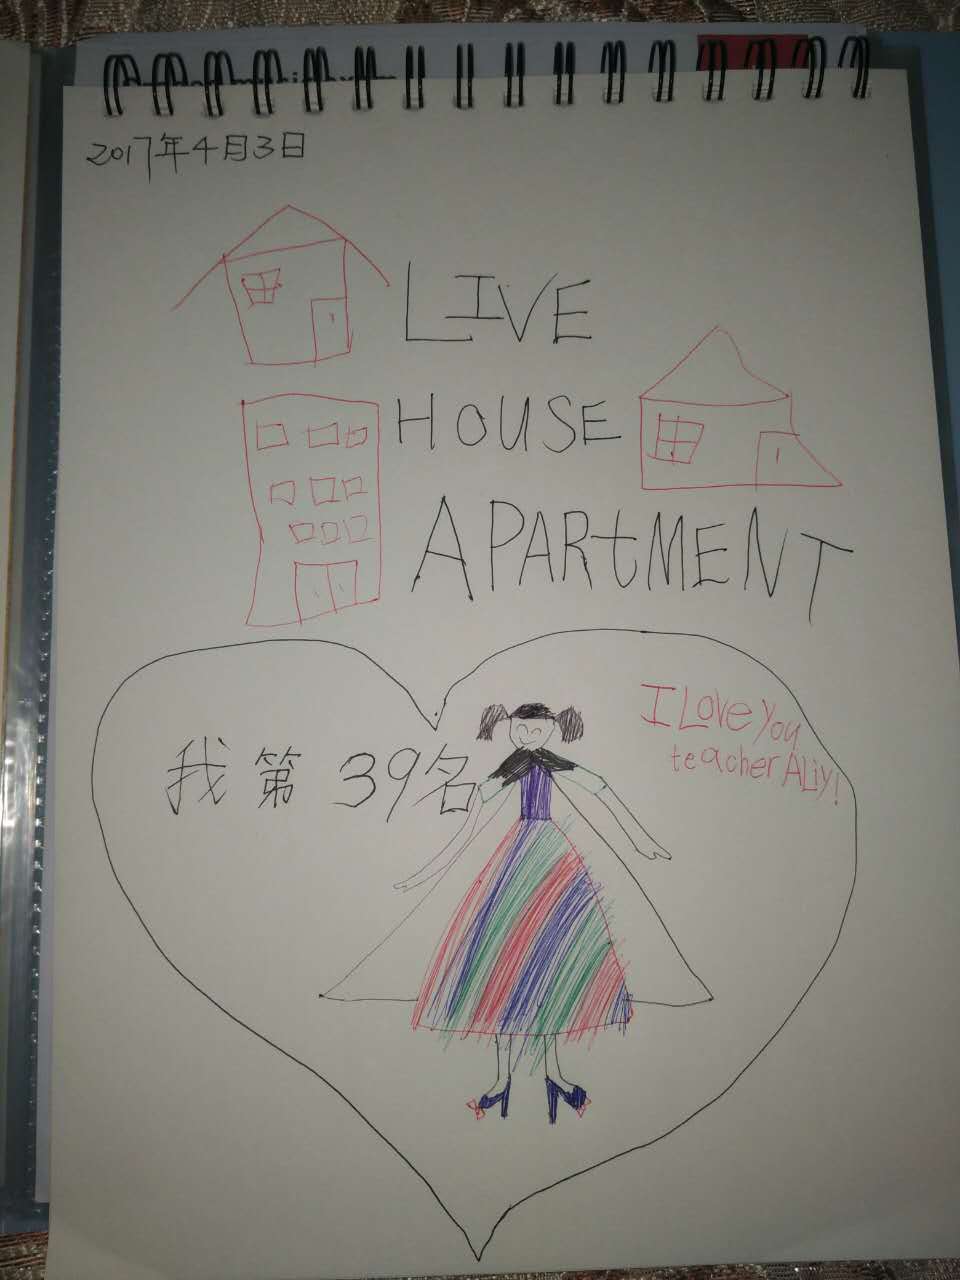 2017年4月3日
LIVE
HOUSE
APARtMENT
I Love You
teacher ALiy!
我第39名